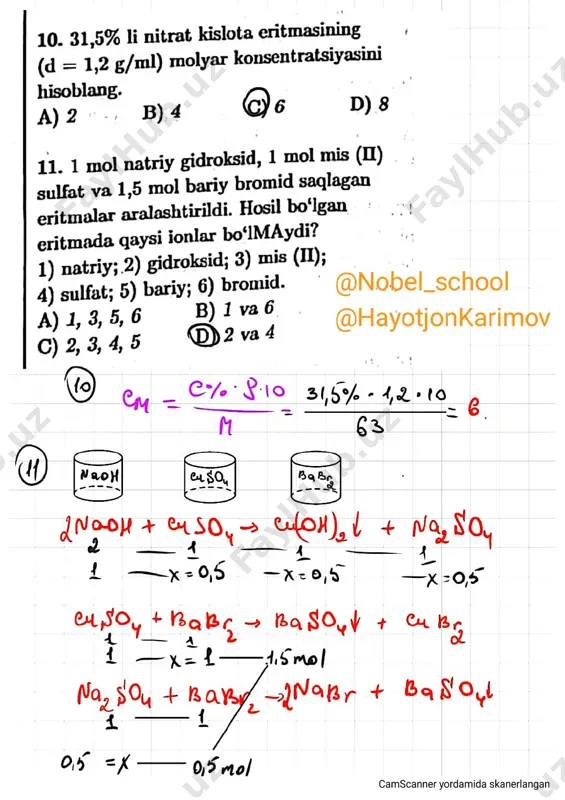 10. 31,5% li nitrat kislota eritmasining
(d = 1,2 g/ml) molyar konsentratsiyasini
hisoblang.
A) 2 B) 4 C) 6 D) 8
11. 1 mol natriy gidroksid, 1 mol mis (II)
sulfat va 1,5 mol bariy bromid saqlagan
eritmalar aralashtirildi. Hosil bo‘lgan
eritmada qaysi ionlar bo‘lMAydi?
1) natriy; 2) gidroksid; 3) mis (II);
4) sulfat; 5) bariy; 6) bromid.
A) 1, 3, 5, 6 B) 1 va 6
C) 2, 3, 4, 5 D) 2 va 4
@Nobel_school
@HayotjonKarimov
10 CM = C% · ρ · 10 / M = 31,5% · 1,2 · 10 / 63 = 6
11 NaOH CuSO4 BaBr2
2NaOH + CuSO4 → Cu(OH)2↓ + Na2SO4
2 — 1 — 1 — 1
1 — x = 0,5 — x = 0,5 — x = 0,5
CuSO4 + BaBr2 → BaSO4↓ + CuBr2
1 — 1
1 — x = 1 — 1,5 mol
Na2SO4 + BaBr2 → 2NaBr + BaSO4↓
1 — 1
0,5 = x — 0,5 mol
CamScanner yordamida skanerlangan
FaylHub.uz
FaylHub.uz
FaylHub.uz